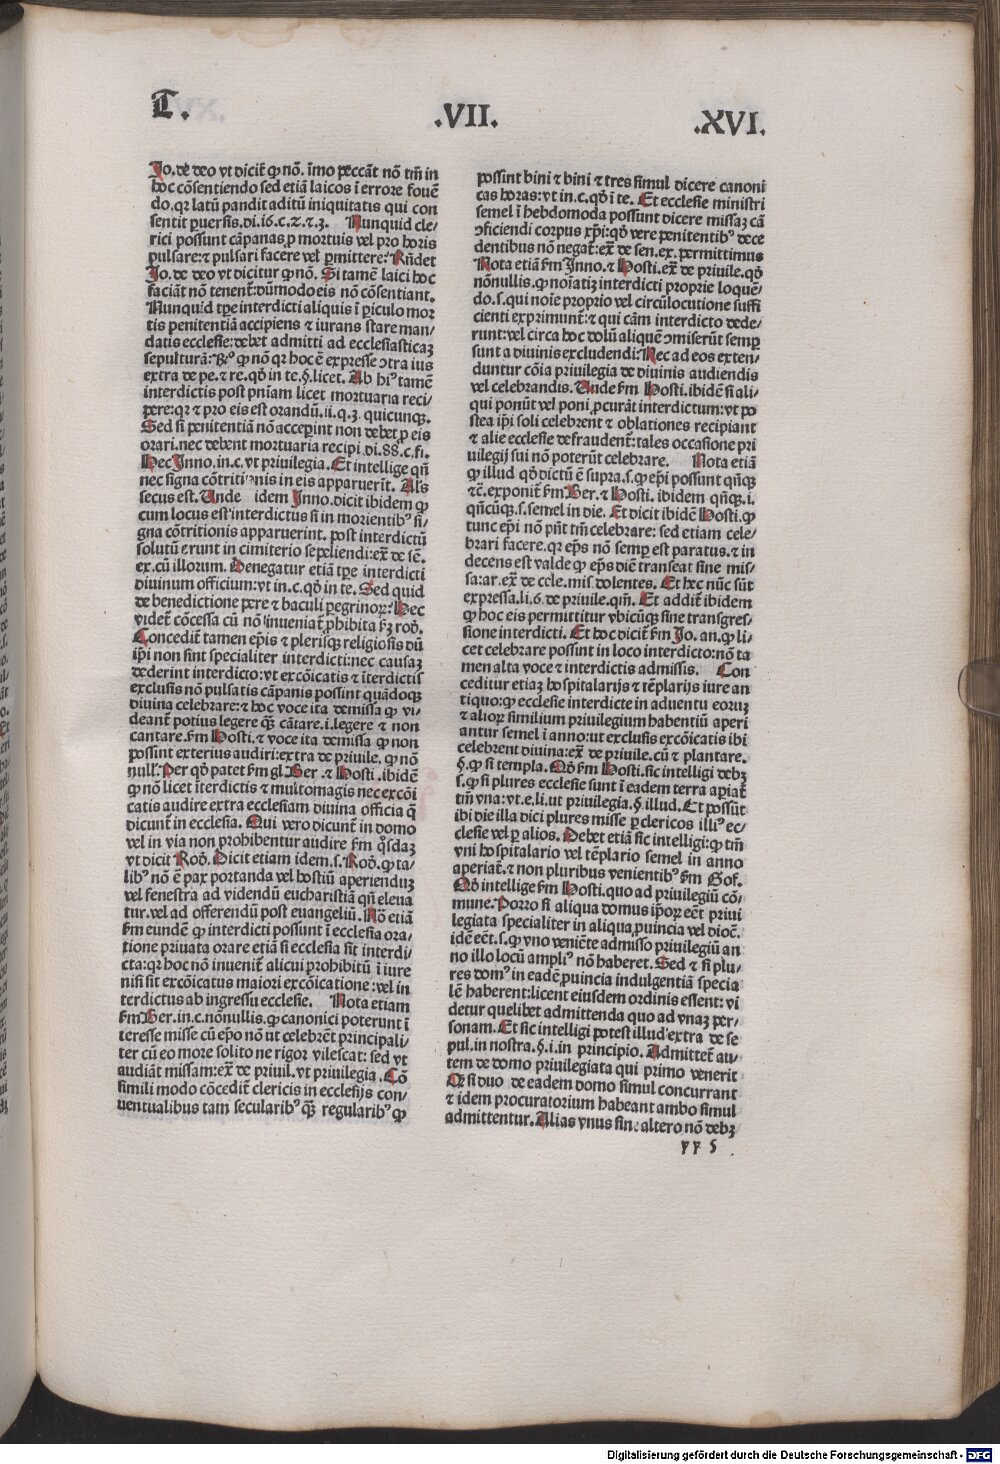 T.
.VII.
.XVI.
Jo. de deo vt dicit̃ ꝙ nõ. ĩmo peccãt nõ tm̃ in
hoc cõsentiendo sed etiã laicos ĩ errore fouẽ
do. qr latũ pandit aditũ iniquitatis qui con
sentit ꝑuersis. di. i6. c. 2. ⁊. 3. Nunquid cle⸗
rici possunt cãpanas ꝓ mortuis vel pro horis
pulsare: ⁊ pulsari facere vel ꝑmittere: Rñdet
Jo. de deo vt dicitur ꝙ nõ. Si tamẽ laici hoc
faciãt nõ tenent̃: dũmodo eis nõ cõsentiant.
Nunquid tꝑe interdicti aliquis ĩ ꝑiculo mor
tis penitentiã accipiens ⁊ iurans stare man⸗
datis ecclesie: debet admitti ad ecclesiasticaꝫ
sepulturã: ꝙ nõ qr hoc ẽ expresse ɔtra ius
extra de pe. ⁊ re. qđ in te. §. licet. Ab hiꝰ tamẽ
interdictis post pñiam licet mortuaria reci⸗
pere: qr ⁊ pro eis est orandũ. ii. q. 3. quicunqꝫ.
Sed si penitentiã nõ acceꝑint non debet ꝓ eis
orari. nec debent mortuaria recipi. di. 88. c. fi.
Hec Inno. in. c. vt priuilegia. Et intellige qñ
nec signa cõtritiõnis in eis apparuerĩt. Als̃
secus est. Unde idem Inno. dicit ibidem ꝙ
cum locus est interdictus si in morientibꝰ si⸗
gna cõtritionis apparuerint. post interdictũ
solutũ erunt in cimiterio sepeliendi: ex̃ de sẽ.
ex. cũ illorum. Denegatur etiã tꝑe interdicti
diuinum officium: vt in. c. qđ in te. Sed quid
de benedictione pere ⁊ baculi ꝑegrinoꝝ: Nec
videt̃ cõcessa cũ nõ inueniat̃ ꝓhibita fꝫ rođ.
Concedit̃ tamen ep̃is ⁊ plerisqꝫ religiosis dũ
ip̃i non sint specialiter interdicti: nec causaꝫ
dederint interdicto: vt excõicatis ⁊ ĩterdictis
exclusis nõ pulsatis cãpanis possint quãdoqꝫ
diuina celebrare: ⁊ hoc voce ita demissa ꝙ vi⸗
deant̃ potius legere q̃ꝫ cãtare. i. legere ⁊ non
cantare. fm̃ Hosti. ⁊ voce ita demissa ꝙ non
possint exterius audiri: extra de priuile. ꝙ nõ
null. Per qđ patet fm̃ gl. Ber. ⁊ Hosti. ibidẽ
ꝙ nõ licet ĩterdictis ⁊ multomagis nec excõi
catis audire extra ecclesiam diuina officia q̃
dicunt̃ in ecclesia. Qui vero dicunt̃ in domo
vel in via non prohibentur audire fm̃ q̃sdaꝫ
vt dicit Rođ. Dicit etiam idem. s. Rođ. ꝙ ta⸗
libꝰ nõ ẽ pax portanda vel hostiũ aperienduꝫ
vel fenestra ad videndũ eucharistiã qñ eleua
tur. vel ad offerendũ post euangeliũ. Nõ etiã
fm̃ eundẽ ꝙ interdicti possunt ĩ ecclesia ora⸗
tione priuata orare etiã si ecclesia sit interdi⸗
cta: qr hoc nõ inuenit̃ alicui prohibitũ ĩ iure
nisi sit excõicatus maiori excõicatione: vel in
terdictus ab ingressu ecclesie. Nota etiam
fm̃ Ber. in. c. nõnullis. ꝙ canonici poterunt ĩ
teresse misse cũ ep̃o nõ ut celebrẽt principali⸗
ter cũ eo more solito ne rigor vilescat: sed vt
audiãt missam: ex̃ de priuil. vt priuilegia. Cõ
simili modo cõcedit̃ clericis in ecclesijs con⸗
uentualibus tam secularibꝰ q̃ꝫ regularibꝰ ꝙ
possint bini ⁊ bini ⁊ tres simul dicere canoni
cas horas: vt in. c. qđ ĩ te. Et ecclesie ministri
semel ĩ hebdomoda possunt dicere missaꝫ cã
ɔficiendi corpus xp̃i: qđ vere penitentibꝰ dece
dentibus nõ negat̃: ex̃ de sen. ex. permittimus
Nota etiã fm̃ Inno. ⁊ Hosti. ex̃ de priuile. qđ
nõnullis. ꝙ noĩatiꝫ interdicti proprie loquẽ⸗
do. s. qui noĩe proprio vel circũlocutione suffi
cienti exprimunt̃: ⁊ qui cãm interdicto dede⸗
runt: vel circa hoc dolũ aliquẽ ɔmiserũt semꝑ
sunt a diuinis excludendi: Nec ad eos exten⸗
duntur cõia priuilegia de diuinis audiendis
vel celebrandis. Unde fm̃ Hosti. ibidẽ si ali⸗
qui ponũt vel poni ꝓcurãt interdictum: vt po
stea ip̃i soli celebrent ⁊ oblationes recipiant
⁊ alie ecclesie defraudent̃: tales occasione pri
uilegij sui nõ poterũt celebrare. Nota etiã
ꝙ illud qđ dictũ ẽ supra. s. ꝙ ep̃i possunt qñqꝫ
⁊c̃. exponit̃ fm̃ Ber. ⁊ Hosti. ibidem qñqꝫ. i.
qñcũqꝫ. s. semel in die. Et dicit ibidẽ Hosti. ꝙ
tunc ep̃i nõ pñt tm̃ celebrare: sed etiam cele⸗
brari facere. qr ep̃s nõ semꝑ est paratus. ⁊ in
decens est valde ꝙ ep̃s diẽ transeat sine mis⸗
sa: ar. ex̃ de cele. mis. dolentes. Et hec nũc sũt
expressa. li. 6. de priuile. qm̃. Et addit̃ ibidem
ꝙ hoc eis permittitur vbicũqꝫ sine transgres⸗
sione interdicti. Et hoc dicit fm̃ Jo. an. ꝙ li⸗
cet celebrare possint in loco interdicto: nõ ta
men alta voce ⁊ interdictis admissis. Con
ceditur etiaꝫ hospitalarijs ⁊ tẽplarijs iure an
tiquo: ꝙ ecclesie interdicte in aduentu eoruꝫ
⁊ alioꝝ similium priuilegium habentiũ aperi
antur semel ĩ anno: ut exclusis excõicatis ibi
celebrent diuina: ex̃ de priuile. cũ ⁊ plantare.
§. ꝙ si templa. Qđ fm̃ Hosti. sic intelligi debꝫ
s. ꝙ si plures ecclesie sunt ĩ eadem terra aꝑiat̃
tm̃ vna: vt. e. li. ut priuilegia. §. illud. Et possũt
ibi die illa dici plures misse ꝑ clericos illiꝰ ec⸗
clesie vel ꝑ alios. Debet etiã sic intelligi: ꝙ tm̃
vni hospitalario vel tẽplario semel in anno
aperiat̃. ⁊ non pluribus venientibꝰ fm̃ Gof.
Qđ intellige fm̃ Hosti. quo ad priuilegiũ cõ⸗
mune. Porro si aliqua domus ip̃oꝝ eẽt priui
legiata specialiter in aliqua ꝓuincia vel diõc̃.
idẽ eẽt. s. ꝙ vno veniẽte admisso priuilegiũ an
no illo locũ ampliꝰ nõ haberet. Sed ⁊ si plu⸗
res domꝰ in eadẽ ꝓuincia indulgentiã specia
lẽ haberent: licent eiusdem ordinis essent: vi
detur quelibet admittenda quo ad vnaꝫ per⸗
sonam. Et sic intelligi potest illud extra de se
pul. in nostra. §. i. in principio. Admittet̃ au⸗
tem de domo priuilegiata qui primo venerit
Qđ si duo de eadem domo simul concurrant
⁊ idem procuratorium habeant ambo simul
admittentur. Alias vnus sine altero nõ debꝫ
yy 5
Digitalisierung gefördert durch die Deutsche Forschungsgemeinschaft - DFG